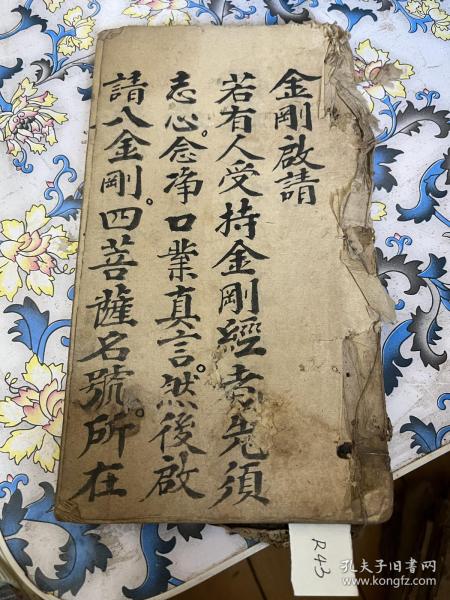 金剛啟請
若有人受持金剛經者先須
志心。念淨口業真言。然後啟
請八金剛。四菩薩名號。所在
R43
孔夫子旧书网
www.kongfz.com